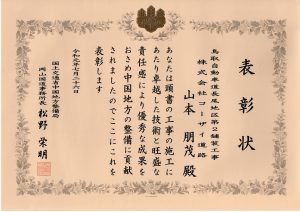 表彰状
鳥取自動車道長尾地区第2舗装工事
株式会社コーザイ道路
山本 朋茂 殿
あなたは頭書の工事の施工に
あたり卓越した技術と旺盛な
責任感により優秀な成果を
おさめ中国地方の整備に貢献
されましたのでここにこれを
表彰します
令和元年七月二十六日
国土交通省中国地方整備局
岡山国道事務所長 松野 栄明